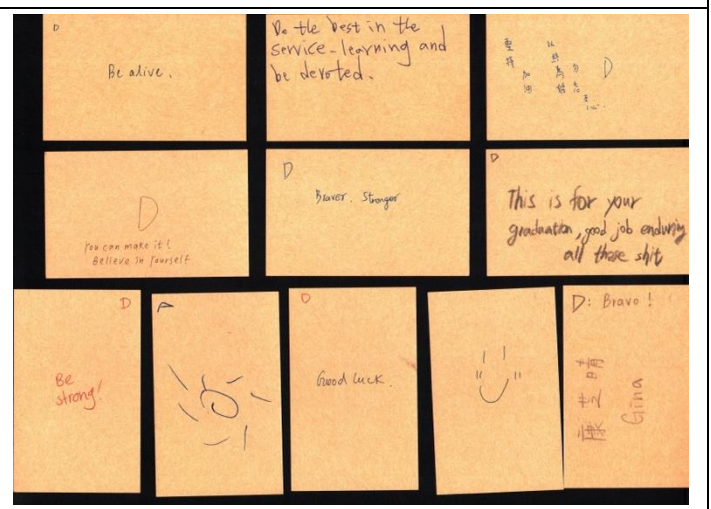 D
Be alive.
Do the best in the
service-learning and
be devoted.
堅持
加油
D
D
You can make it!
Believe in Yourself
D
Braver. Stronger
D
This is for your
graduation, good job enduring
all these shit
D
Be
strong!
D
D
Good luck.
D: Bravo!
康芝晴
Gina